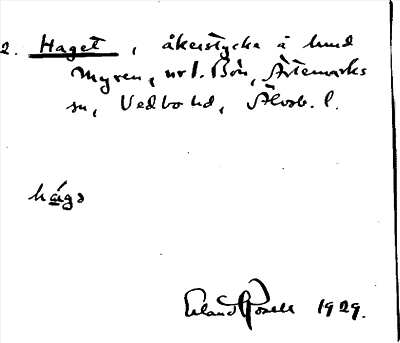 2. Haget, åkerstycke å hmd
Myren, nr 1. Bön, Ärtemarks
sn, Vedbo hd, Älvsb. l.
hágə
Erland Rosell 1929.